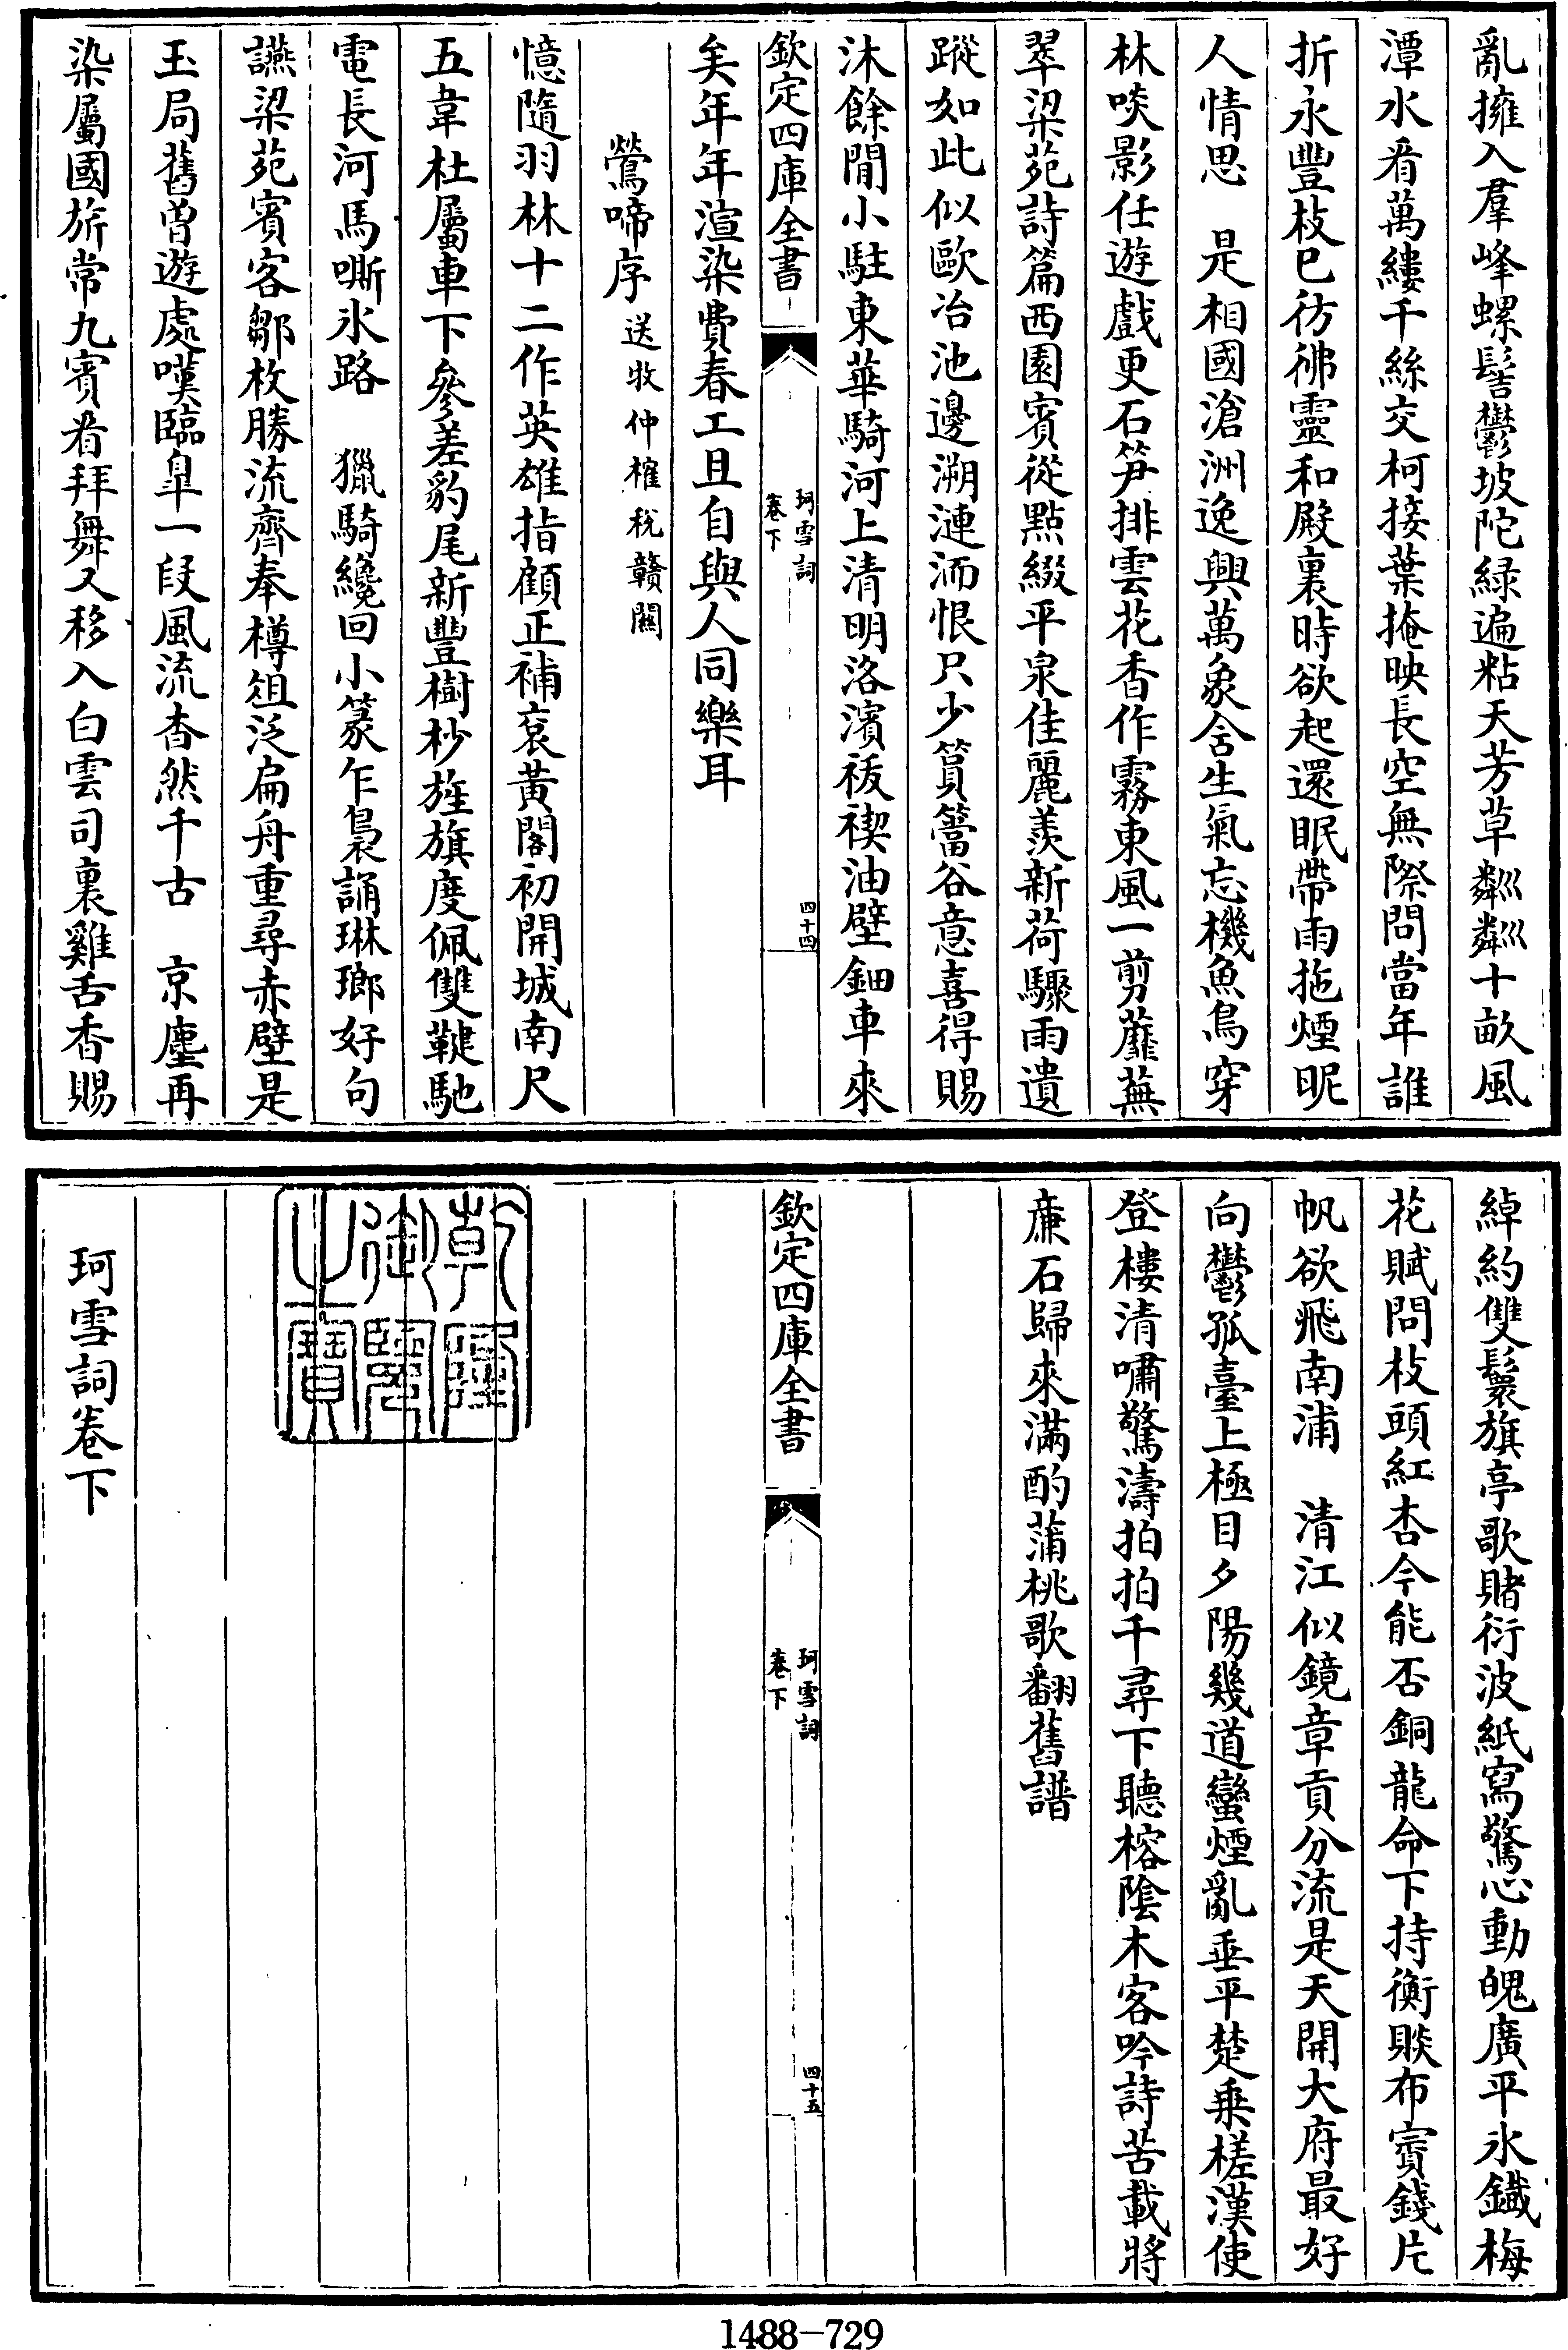 亂擁入羣峰螺髻鬱坡陀緑遍粘天芳草粼粼十畝風
潭水看萬縷千絲交柯接葉掩映長空無際問當年誰
折永豐枝已彷彿靈和殿裏時欲起還眠帶雨拖煙昵
人情思　是相國滄洲逸興萬象含生氣忘機魚鳥穿
林唼影任遊戲更石笋排雲花香作霧東風一剪蘼蕪
翠梁苑詩篇西園賓從點綴平泉佳麗羨新荷驟雨遺
蹤如此似歐冶池邊溯漣洏恨只少篔簹谷意喜得賜
沐餘閒小駐東華騎河上清明洛濱祓禊油壁鈿車來
欽定四庫全書
珂雪詞
卷下
四十四
矣年年渲染費春工且自與人同樂耳
鶯啼序送牧仲榷稅贛關
憶隨羽林十二作英雄指顧正補衮黃閣初開城南尺
五韋杜屬車下參差豹尾新豐樹杪旌旗度佩雙鞬馳
電長河馬嘶氷路　獵騎纔回小篆乍裊誦琳瑯好句
讌梁苑賓客鄒枚勝流齊奉樽俎泛扁舟重尋赤壁是
玉局舊曾遊處嘆臨臯一段風流杳然千古　京塵再
染屬國旂常九賓看拜舞又移入白雲司裏雞舌香賜
綽約雙鬟旗亭歌賭衍波紙寫驚心動魄廣平氷鐡梅
花賦問枝頭紅杏今能否銅龍命下持衡賧布賨錢片
帆欲飛南浦　清江似鏡章貢分流是天開大府最好
向鬱孤臺上極目夕陽幾道蠻煙亂垂平楚乗槎漢使
登樓清嘯驚濤拍拍千尋下聽榕陰木客吟詩苦載將
亷石歸來滿酌蒲桃歌翻舊譜
欽定四庫全書
珂雪詞
卷下
四十五
乾隆
御覽
之寶
珂雪詞卷下
1488-729